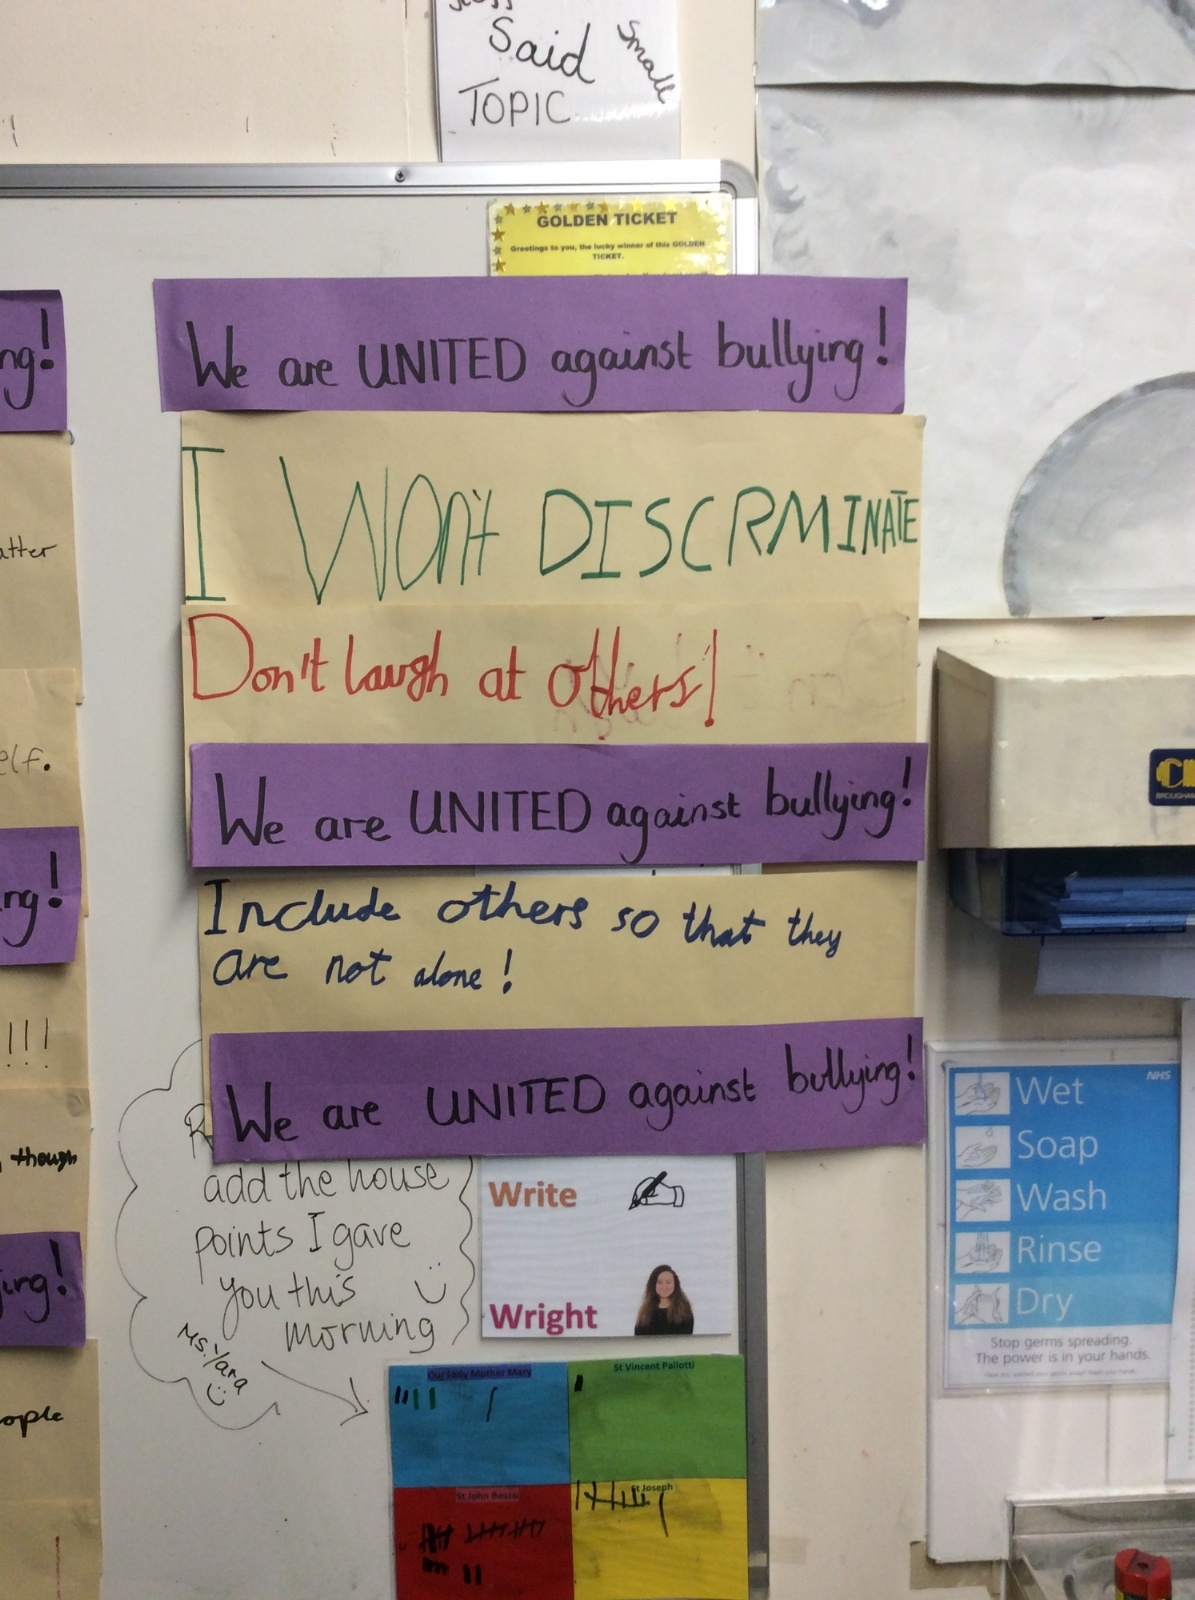 Said
Small
TOPIC
GOLDEN TICKET
Greetings to you, the lucky winner of this GOLDEN
TICKET.
ng!
We are UNITED against bullying!
I WOn't DISCRMINATE
atter
Don't laugh at others!
elf.
We are UNITED against bullying!
ng!
Include others so that they
are not alone!
!!!
We are UNITED against bullying!
though
R
add the house
points I gave
you this
morning
Ms. Yara
ying!
ople
Write
Wright
NHS
Wet
Soap
Wash
Rinse
Dry
Stop germs spreading.
The power is in your hands.
Our Lady Mother Mary
St Vincent Pallotti
St John Bosco
St Joseph